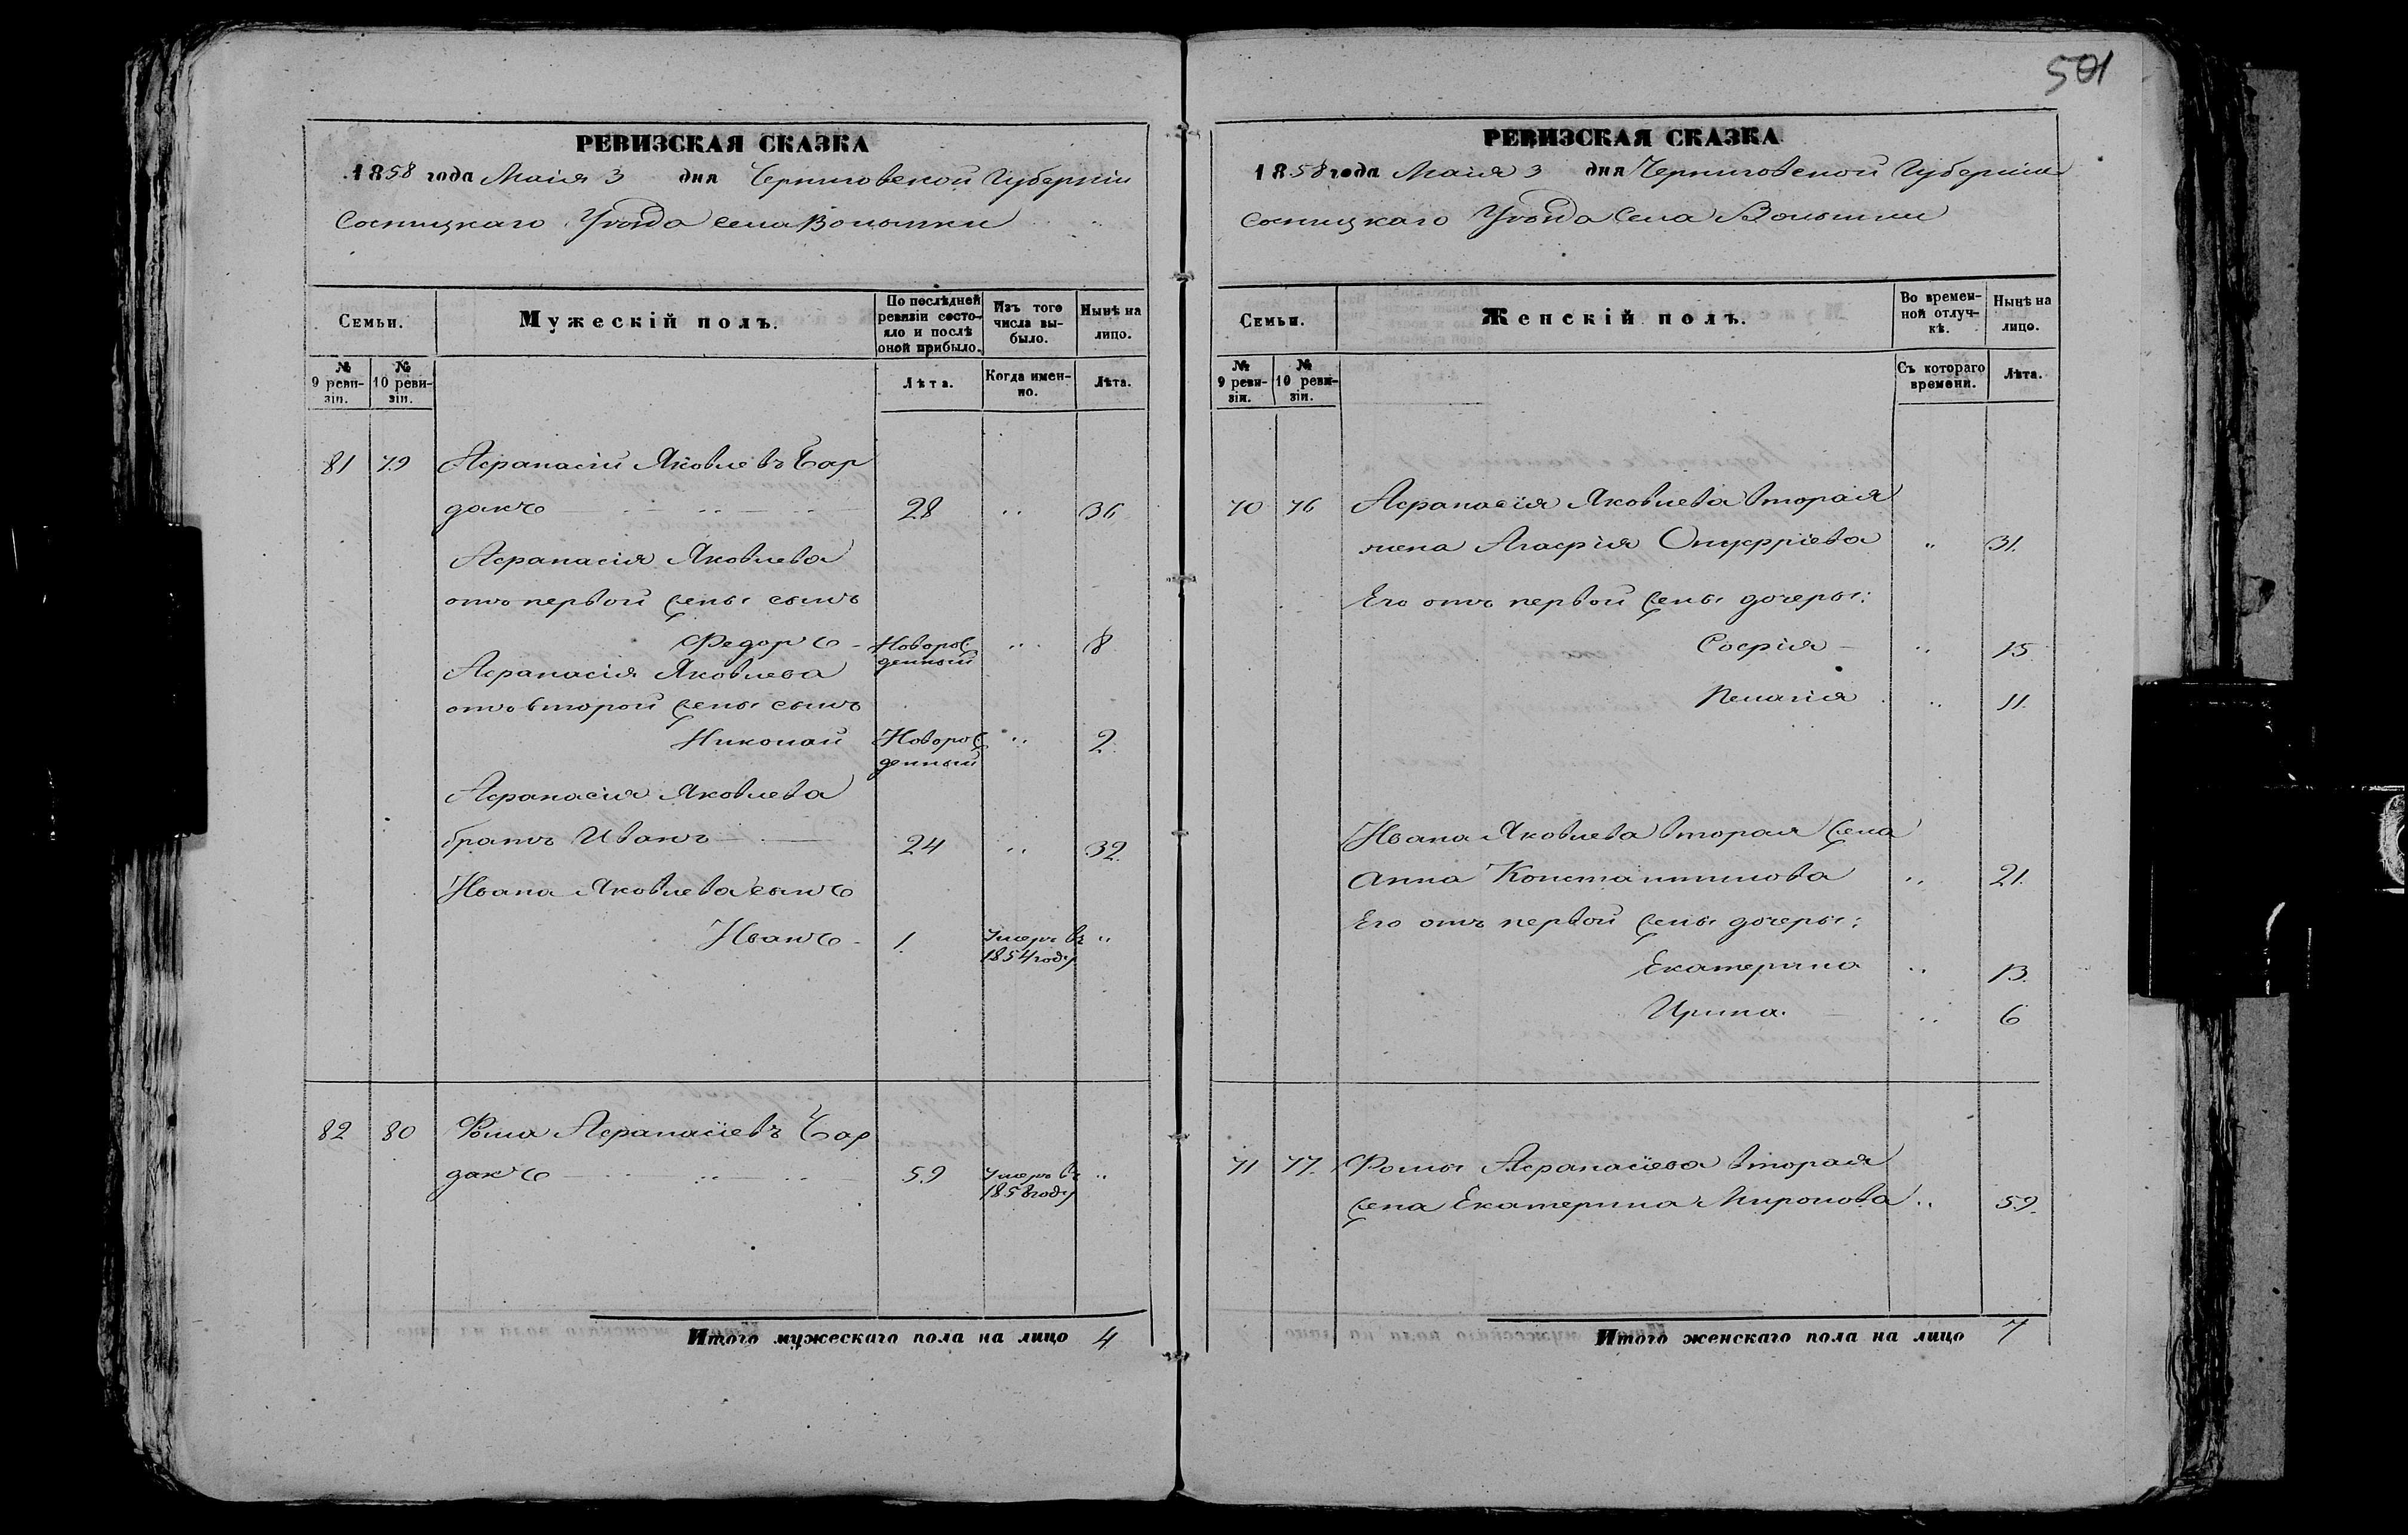 501
РЕВИЗСКАЯ СКАЗКА
1858 года Маія 3 дня Черниговской Губерніи
Сосницкаго Уѣзда села Волынки
Семьи.
Мужескій полъ.
По послѣдней ревизіи состояло и послѣ оной прибыло.
Изъ того числа выбыло.
Нынѣ на лицо.
№ 9 ревизіи.
№ 10 ревизіи.
Лѣта.
Когда именно.
Лѣта.
81 79 Афанасій Яковлевъ Бар
дакъ 28 " 36
Афанасія Яковлева
отъ первой жены сынъ
Федоръ - Новорожденный " 8
Афанасія Яковлева
отъ второй жены сынъ
Николай Новорожденный " 2
Афанасія Яковлева
братъ Иванъ 24 " 32.
Ивана Яковлева сынъ
Иванъ - 1. Умеръ въ 1854 году "
82 80 Фома Афанасіевъ Бар
дакъ 59 Умеръ въ 1858 году "
Итого мужескаго пола на лицо 4
РЕВИЗСКАЯ СКАЗКА
1858 года Маія 3 дня Черниговской Губерніи
Сосницкаго Уѣзда Села Волынки
Семьи.
Женскій полъ.
Во временной отлучкѣ.
Нынѣ на лицо.
№ 9 ревизіи.
№ 10 ревизіи.
Съ котораго времени.
Лѣта.
70 76 Афанасія Яковлева вторая
жена Агафія Онуфріева " 31.
Его отъ первой жены дочеры:
Софія - " 15
Пелагія " 11.
Ивана Яковлева вторая жена
Анна Константинова " 21.
Его отъ первой жены дочеры:
Екатерина " 13.
Ирина. " 6
71 77. Фомы Афанасіева вторая
жена Екатерина Миронова " 59.
Итого женскаго пола на лицо 7